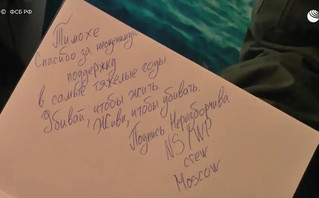 © ФСБ РФ
Тимохе
Спасибо за неоценимую
поддержку
в самые тяжелые годы.
Убивай, чтобы жить
Живи, чтобы убивать.
Подпись Неразборчива
NS/WP
crew
Moscow